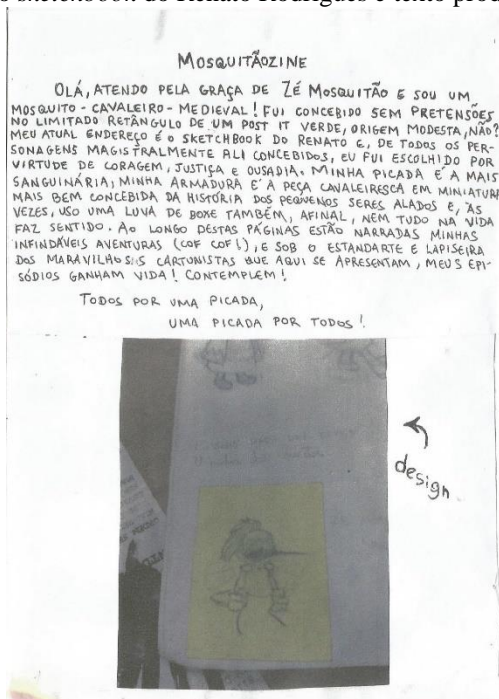 sketchbook do Renato Rodrigues e texto prod
MOSQUITÃOZINE
OLÁ, ATENDO PELA GRAÇA DE ZÉ MOSQUITÃO E SOU UM
MOSQUITO - CAVALEIRO - MEDIEVAL! FUI CONCEBIDO SEM PRETENSÕES
NO LIMITADO RETÂNGULO DE UM POST IT VERDE, ORIGEM MODESTA, NÃO?
MEU ATUAL ENDEREÇO É O SKETCHBOOK DO RENATO E, DE TODOS OS PER-
SONAGENS MAGISTRALMENTE ALI CONCEBIDOS, EU FUI ESCOLHIDO POR
VIRTUDE DE CORAGEM, JUSTIÇA E OUSADIA. MINHA PICADA É A MAIS
SANGUINÁRIA; MINHA ARMADURA É A PEÇA CAVALEIRESCA EM MINIATURA
MAIS BEM CONCEBIDA DA HISTÓRIA DOS PEQUENOS SERES ALADOS E, ÀS
VEZES, USO UMA LUVA DE BOXE TAMBÉM, AFINAL, NEM TUDO NA VIDA
FAZ SENTIDO. AO LONGO DESTAS PÁGINAS ESTÃO NARRADAS MINHAS
INFINDÁVEIS AVENTURAS (COF COF!), E SOB O ESTANDARTE E LAPISEIRA
DOS MARAVILHOSOS CARTUNISTAS QUE AQUI SE APRESENTAM, MEUS EPI-
SÓDIOS GANHAM VIDA! CONTEMPLEM!
TODOS POR UMA PICADA,
UMA PICADA POR TODOS!
design